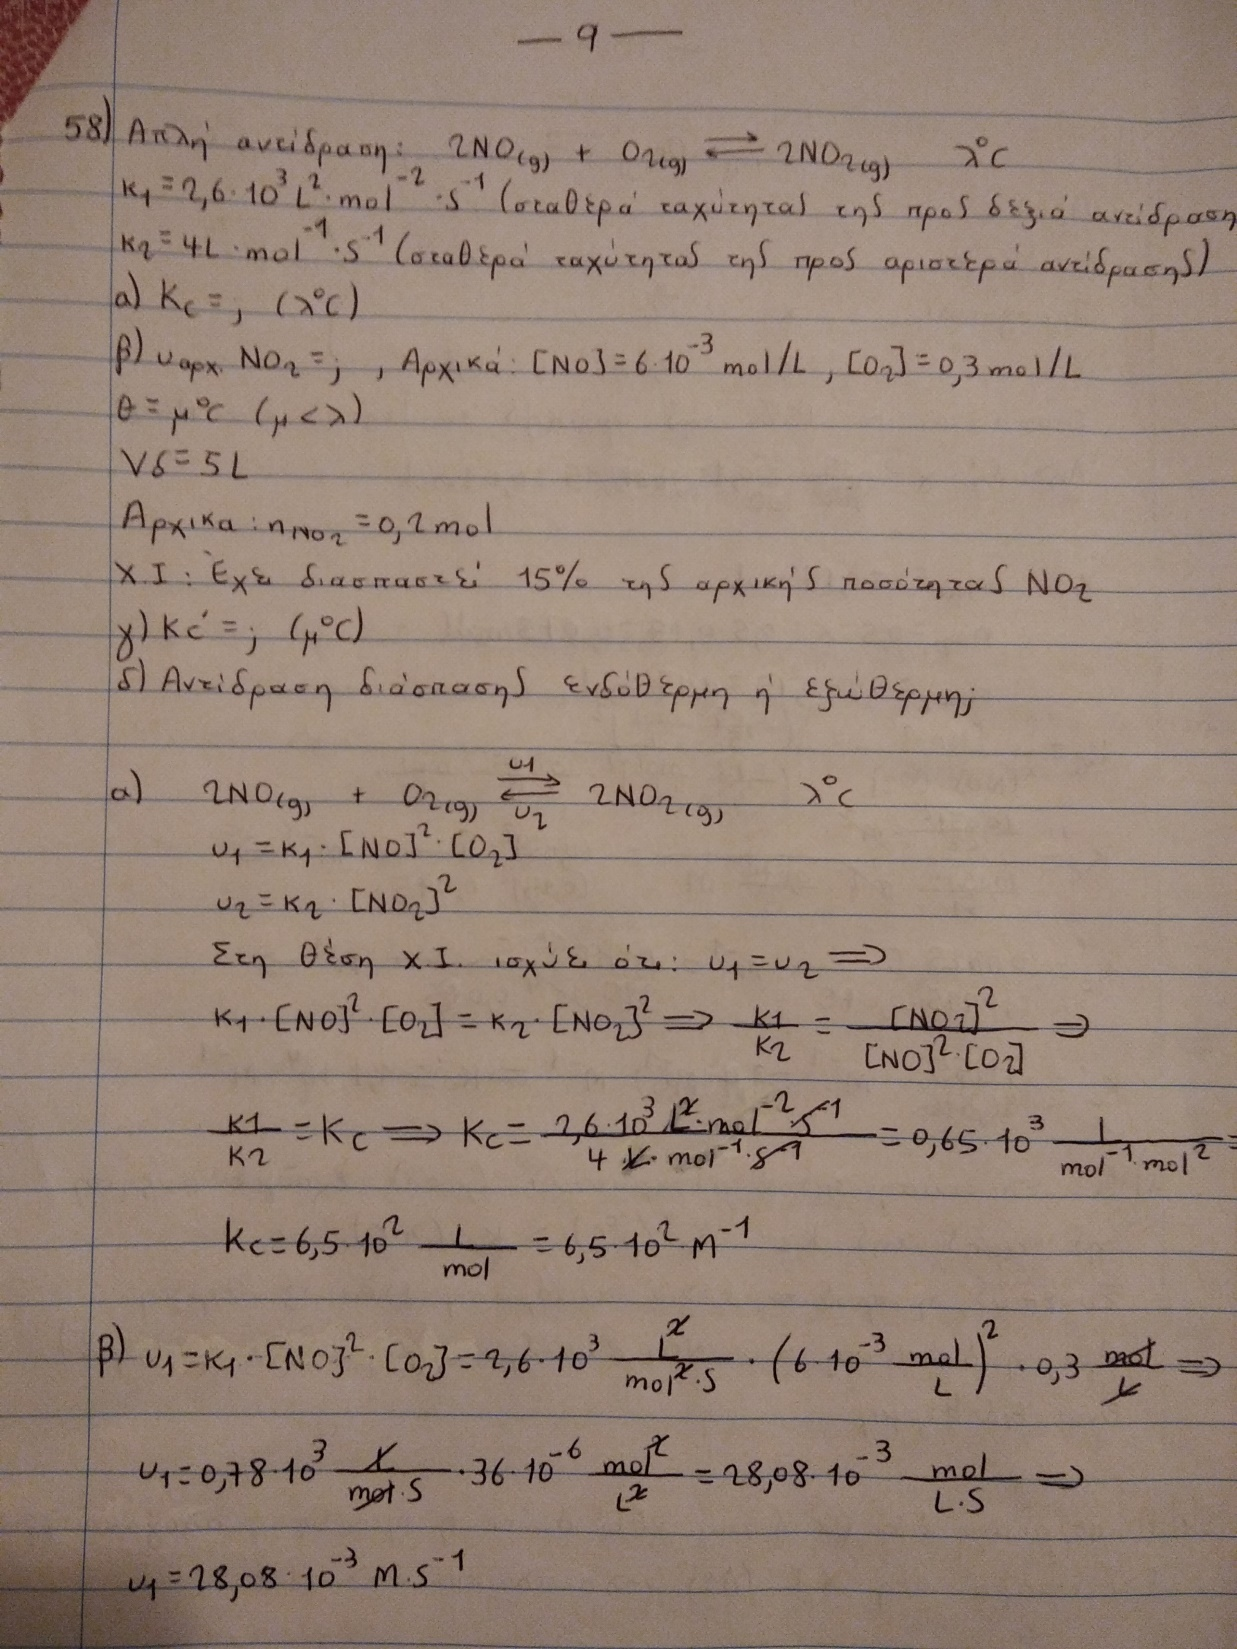 — 9 —
58) Απλή αντίδραση: 2NO(g) + O2(g) ⇌ 2NO2(g) λ°C
κ1 = 2,6·10³ L²·mol⁻²·s⁻¹ (σταθερά ταχύτητας της προς δεξιά αντίδραση
κ2 = 4L·mol⁻¹·s⁻¹ (σταθερά ταχύτητας της προς αριστερά αντίδρασης)
α) Kc = ; (λ°C)
β) υαρχ. NO2 = ; , Αρχικά: [NO] = 6·10⁻³ mol/L , [O2] = 0,3 mol/L
θ = μ°C (μ < λ)
Vδ = 5L
Αρχικα: nNO2 = 0,2 mol
Χ.Ι: Έχει διασπαστεί 15% της αρχικής ποσότητας NO2
γ) Kc' = ; (μ°C)
δ) Αντίδραση διάσπασης ενδόθερμη ή εξώθερμη;
α) 2NO(g) + O2(g) ⇌ 2NO2(g) λ°C υ1 υ2
υ1 = κ1·[NO]²·[O2]
υ2 = κ2·[NO2]²
Στη θέση Χ.Ι. ισχύει ότι: υ1 = υ2 ⇒
κ1·[NO]²·[O2] = κ2·[NO2]² ⇒ κ1/κ2 = [NO2]²/[NO]²·[O2] ⇒
κ1/κ2 = Kc ⇒ Kc = 2,6·10³ L²·mol⁻²·s⁻¹/4 L·mol⁻¹·s⁻¹ = 0,65·10³ L/mol⁻¹·mol² =
Kc = 6,5·10² L/mol = 6,5·10² M⁻¹
β) υ1 = κ1·[NO]²·[O2] = 2,6·10³ L²/mol²·s · (6·10⁻³ mol/L)² · 0,3 mol/L ⇒
υ1 = 0,78·10³ L/mol·s · 36·10⁻⁶ mol²/L² = 28,08·10⁻³ mol/L·s ⇒
υ1 = 28,08·10⁻³ M·s⁻¹